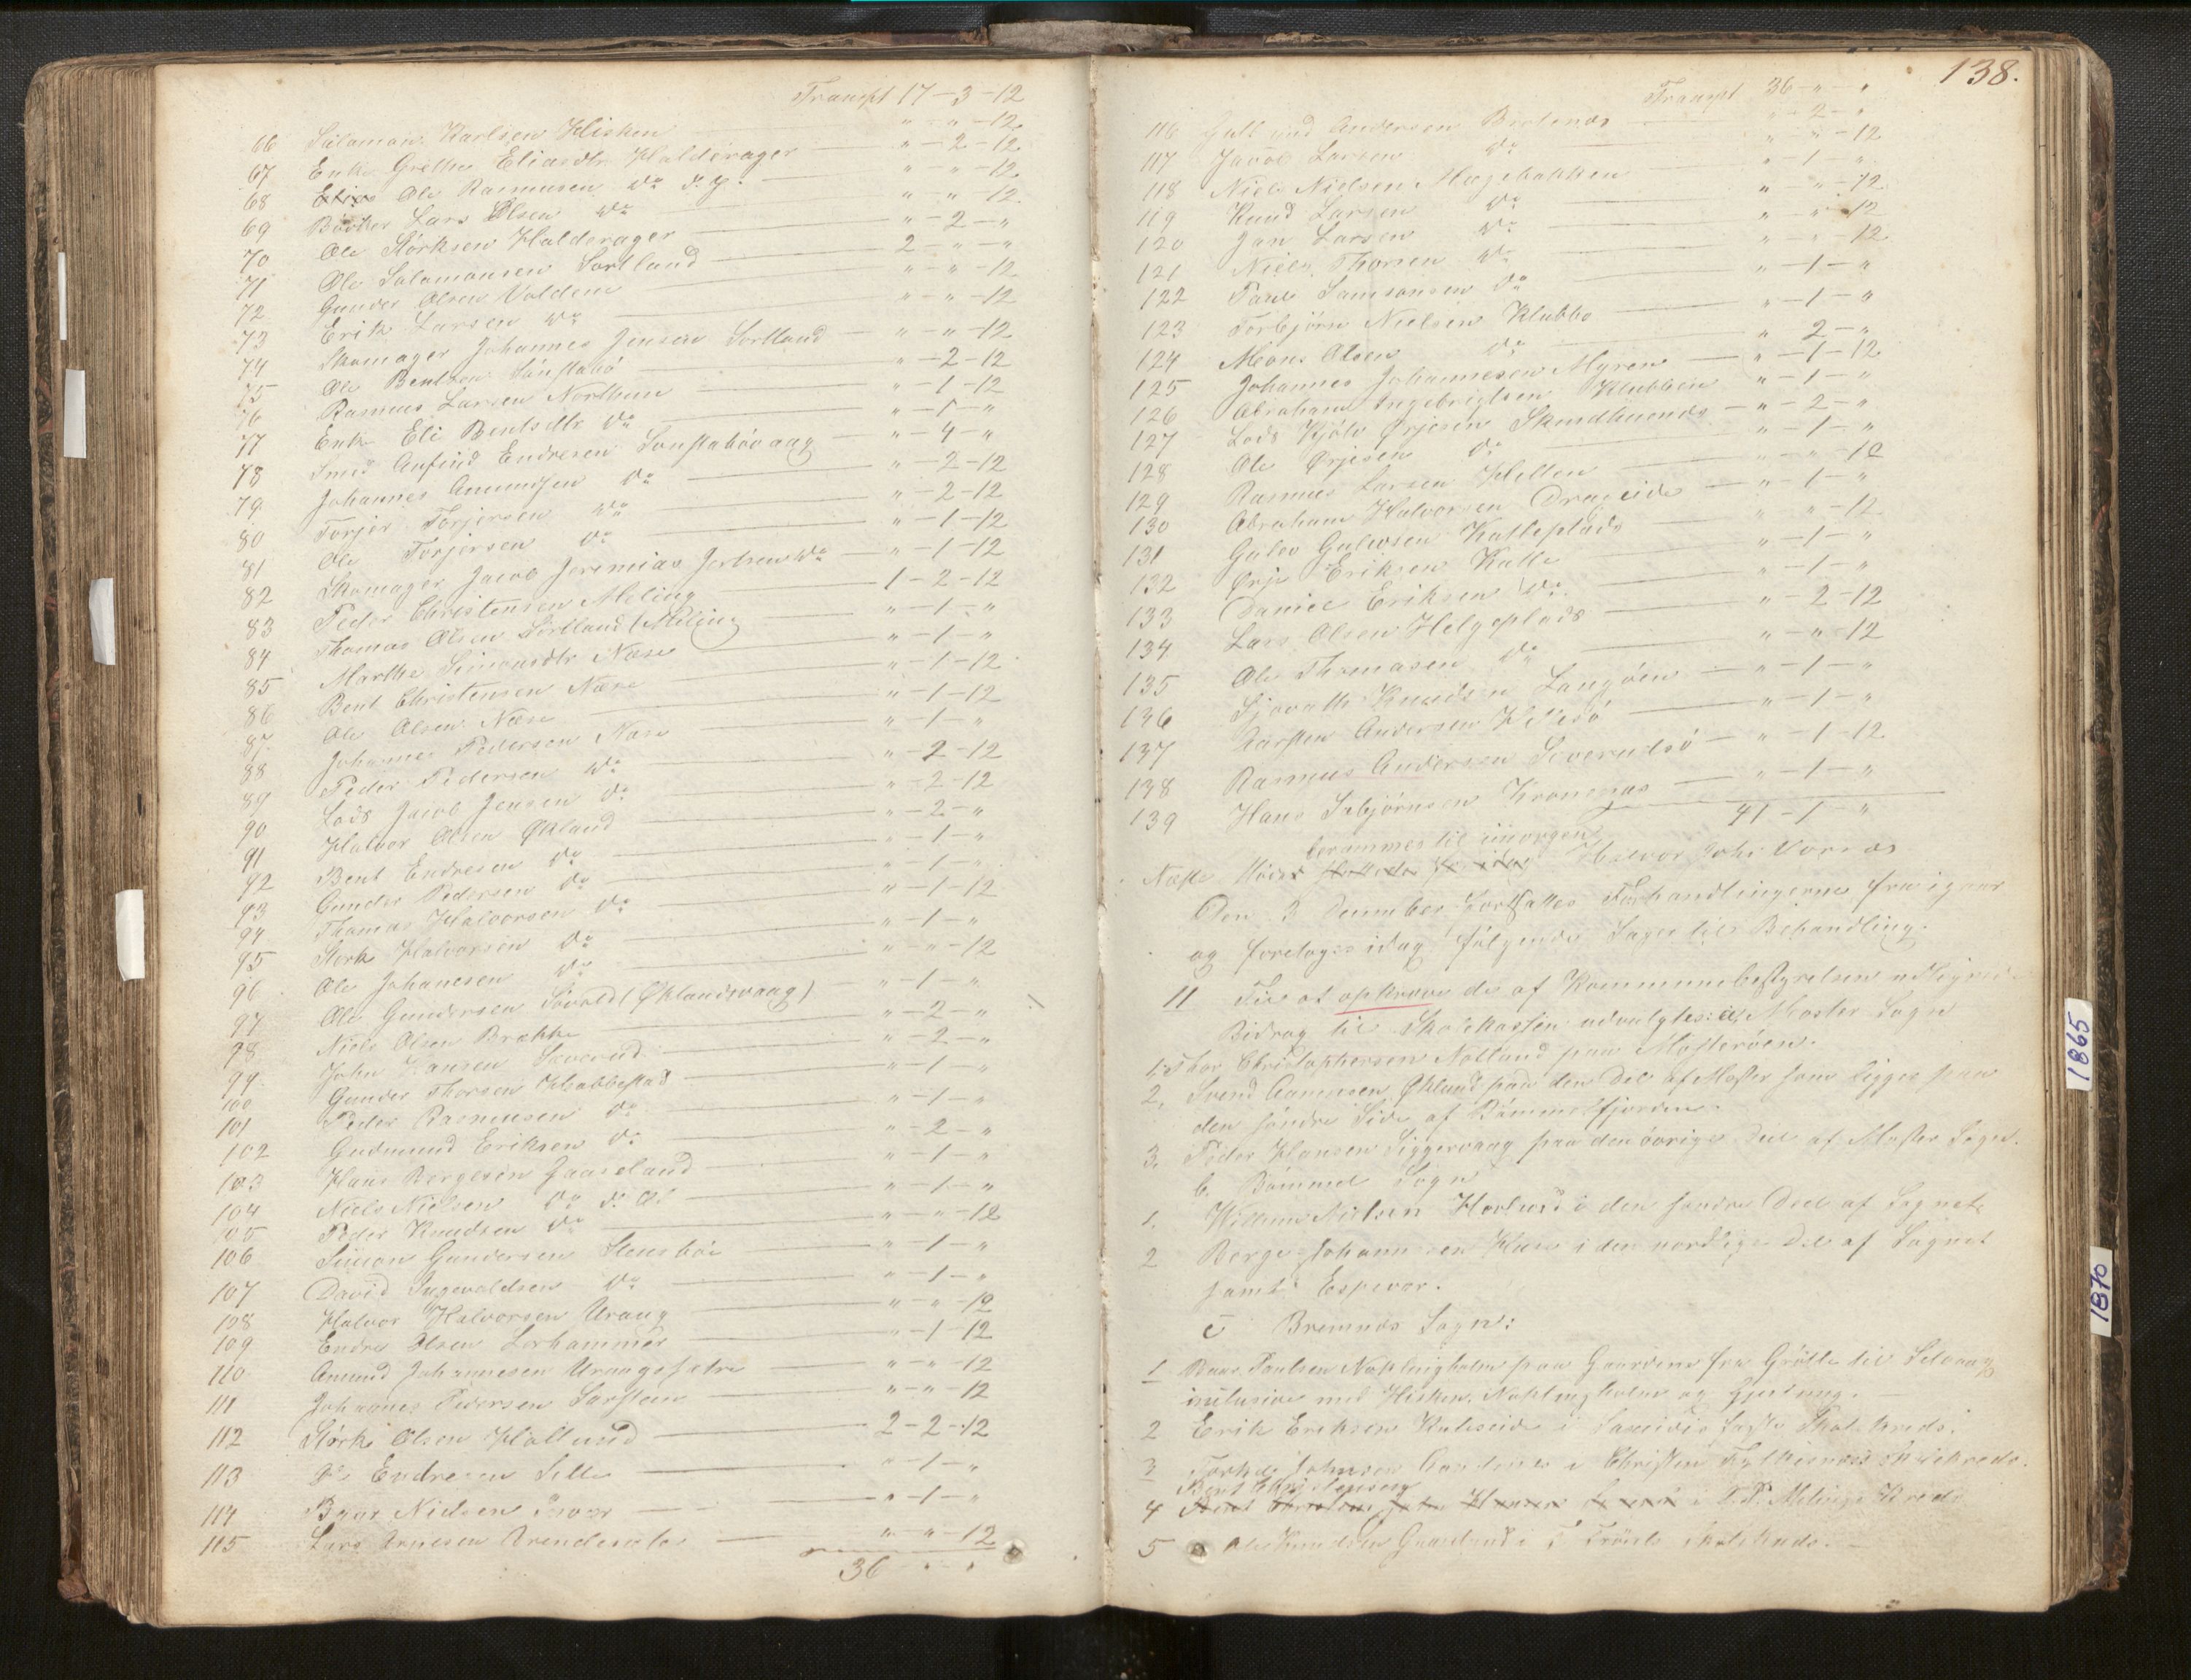 Transpt 17 - 3 - 12
66 Salamon Karlsen Hisken " - " - 12
67 Enke Grethe Eliasdtr Halderager " - 2 - 12
68 Ole Rasmusen do d. y. " - " - 12
69 Bødker Lars Olsen do " " 12
70 Ole Størksen Halderager " - 2 - "
71 Ole Salamonsen Sortland 2 - " - "
72 Gunder Olsen Volden " - " - 12
73 Erik Larsen do " - " - 12
74 Skomager Johannes Jensen Sortland " - " - 12
75 Ole Bentsen Sønstabø " - 2 - 12
76 Rasmus Larsen Northun " - 1 - 12
77 Enke Eli Bentsdtr do " - 1 - "
78 Smed Anfind Endresen Sønstabøvaag " - 4 - "
79 Johannes Amundsen do " - 2 - 12
80 Torjer Torjersen do " - 2 - 12
81 Ole Torjersen do " - 1 - 12
82 Skomager Jacob Jeremias do " - 1 - 12
83 Peder Christensen Meling 1 - 2 - 12
84 Thomas Olsen Sortland (Meling " - 1 - "
85 Marthe Simonsdtr Næse " - 1 - "
86 Bent Christensen Næse " - 1 - 12
87 Ole Olsen Næse " - 1 - 12
88 Johannes Pedersen Næse " - 1 - "
89 Peder Pedersen do " - 2 - 12
90 Lods Jacob Jensen do " - 2 - 12
91 Halvor Olsen Økland " - 2 - "
92 Bent Endresen do " - 1 - "
93 Gunder Pedersen do " - 1 - "
94 Thomas Halvorsen do " - 1 - 12
95 Størk Halvorsen do " - 1 - "
96 Ole Johanesen do " - " - 12
97 Ole Gundersen Søvold (Øklandsvaag) " - 1 - "
98 Niels Olsen Brække " - 2 - "
99 John Hansen Sæverud " - 2 - "
100 Gunder Thorsen Habbestad " - 1 - "
101 Peder Rasmusen do " - 1 - "
102 Gudmund Eriksen do " - 2 - "
103 Hans Børgesen Gaaseland " - 1 - "
104 Niels Nielsen do d. Æl " - 1 - "
105 Peder Knudsen do " - " - 12
106 Simon Gundersen Stensbø " - 1 - "
107 David Ingevaldsen do " - 1 - "
108 Halvor Halvorsen Uraag " - " - 12
109 Endre Olsen Lorhammer " - 1 - 12
110 Amund Johannesen Uraagssætre " - " - 12
111 Johannes Pedersen Sarsteen " - " - 12
112 Størk Olsen Hollund 2 - 2 - 12
113 Endresen Sille " - 1 - "
114 Baar Nielsen " - 1 - "
115 Lars Arnesen " " - 12
36 - " - "
138.
Transpt 36 - " - "
116 Andersen Bratenæs " - 2 - "
117 Jacob Larsen do " - " - 12
118 Niels Nielsen Hægebakken " - 1 - "
119 Knud Larsen do " - " - 12
120 Jan Larsen do " - " - 12
121 Niels Thorsen do " - " - 12
122 Paul Samsonsen do " - 1 - "
123 Torbjørn Nielsen Klubbo " - 1 - "
124 Mons Olsen do " 2 - "
125 Johannes Johannesen Myren " - 1 - 12
126 Abraham Ingebrigtsen Klubben " - 1 - "
127 Lods Kjøln Ørjesen " - 2 - "
128 Ole Ørjesen do " - 1 - "
129 Rasmus Larsen Hellen " - " - 12
130 Abraham Halvorsen Drageide " - 1 - "
131 Gulov Gulovsen Kalleplads " " - 12
132 Ørje Eriksen Kalle " - 1 - "
133 Daniel Eriksen do " - 1 - "
134 Lars Olsen Helgeplads " - 2 - 12
135 Ole Thomasen do " - " - 12
136 Sjovath Knudsen Langøen " - 1 - "
137 Karsten Andersen Hillesø " - 1 - "
138 Rasmus Andersen Siverudsø " - 1 - 12
139 Hans Sæbjørnsen Kronenæs " - 1 - "
41 - 1 - "
berammes til imorgen
Næste Møde Halvor Johs Vornæs
Den 3 December fortsattes Forhandlingerne fra igaar
og foretoges idag følgende Sager til Behandling.
11 Til at opkræve de af Kommunebestyrelsen udlignede
Bidrag til Skolekassen udvalgtes: a, Moster Sogn
1. Thor Christophersen Notland paa Mosterøen.
2, Svend Aamusen Økland paa den Del af Moster som ligger paa
den søndre Side af Bømmelfjorden.
3. Peder Hansen Siggervaag paa den øvrige Deel af Moster Sogn.
b. Bømmel Sogn
1. Willum Nielsen Hovlund i den søndre Deel af Sognet
2 Børge Johannesen Huse i den nordlige Del af Sognet
samt Espevær.
c Bremnæs Sogn:
1 Baar Paulsen Nøklingholm paa Gaardene fra Grøtle til Selvaag
inclusive med Hisken, Nøklingholm og Gjersung.
2 Erik Eriksen Kuleseide i Skolekreds.
3 Johnsen i Christen Skolekreds.
Bent Christensen
4 i P. P. Melings Kreds
5 Ole Knudsen Gaaseland i Skolekreds.
1865
1870